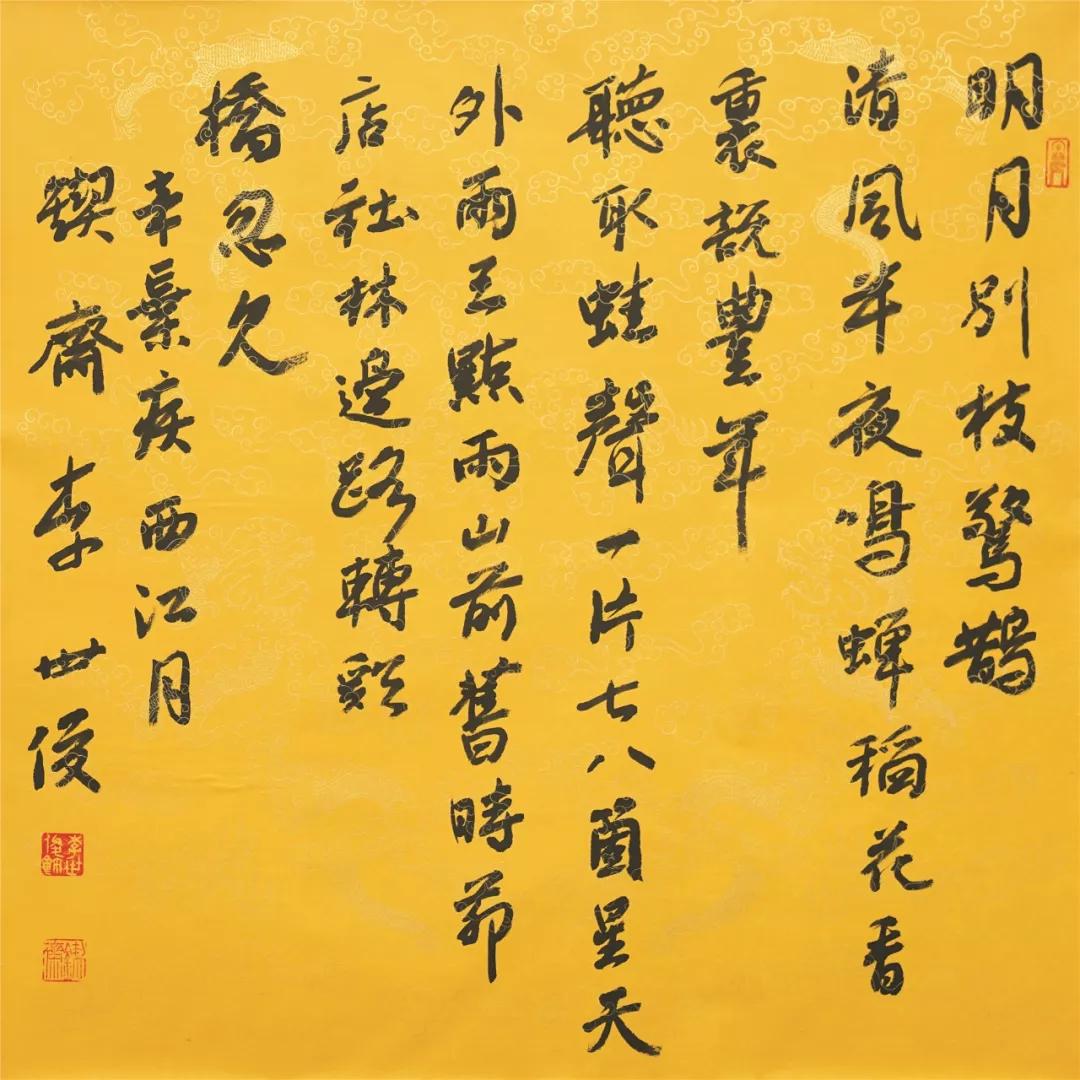 明月別枝驚鵲
清風半夜鳴蟬稻花香
裏説豐年
聽取蛙聲一片七八箇星天
外兩三點雨山前舊時茆
店社林邊路轉谿
橋忽見
辛棄疾西江月
鍥齋李世俊